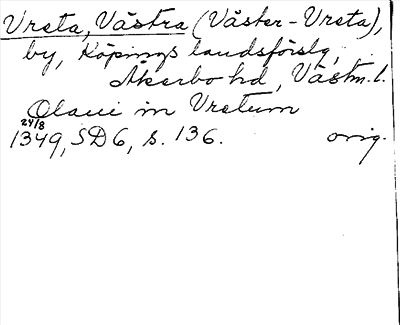 Vreta, Västra (Väster-Vreta),
by, Köpings landsförslg,
Åkerbo hd, Västm. l.
Olaui in Vretum
24/8
1349, SD6, s. 136. orig.